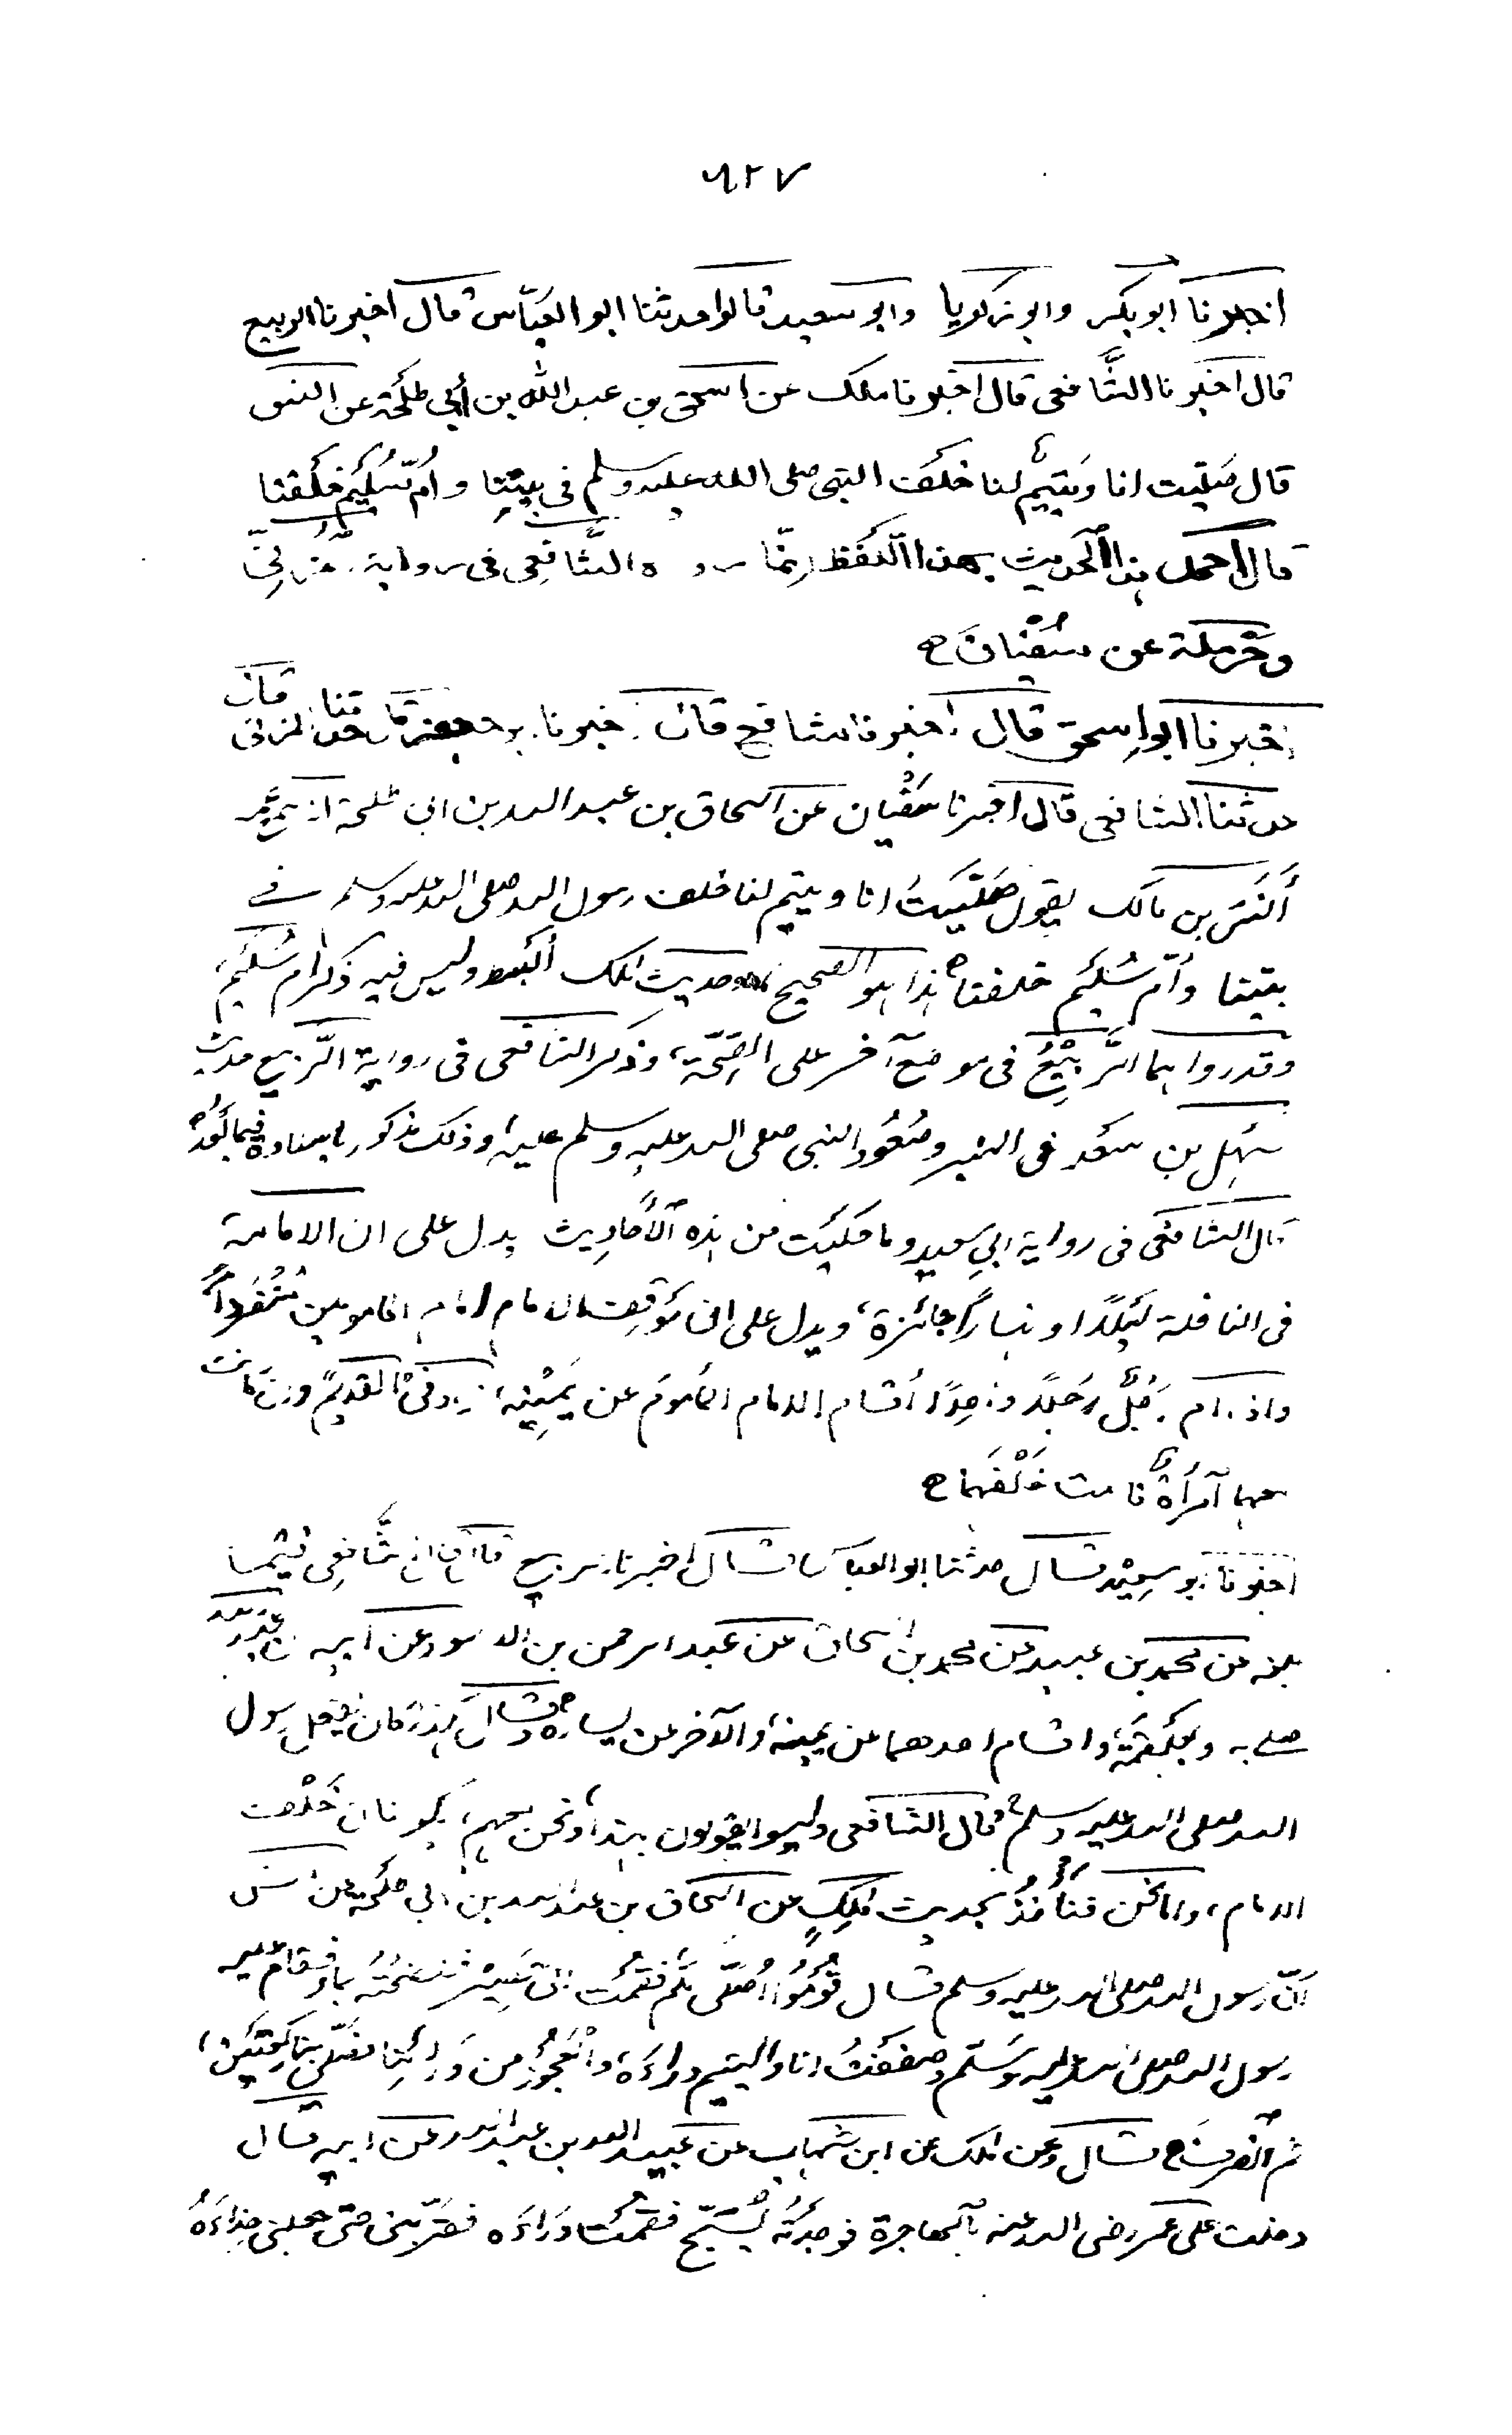 ٩٢٧
اخبرنا ابو بكر وابو زكريا وابو سعيد قالوا حدثنا ابو العبّاس قال اخبرنا الربيع
قال اخبرنا الشّافعى قال اخبرنا ملك عن اسحق بن عبد الله بن أبي طلحة عن انس
قال صَلّيت انا ويَتيمٌ لنا خلفَ النبى صلى الله عليه وسلم فى بيتِنا وأمّ سُلَيمٍ خلفنا
قال احمد هذا الحديث بهذا اللّفظ إنمّا رواه الشّافعِى فى رواية المُزَنِىّ
وحَرْملة عن سُفْيانَ ح
اخبرنا ابو إسحق قال اخبرنا شافع قال اخبرنا ابو جعفر قال حدثنا المزنى قال
حدثنا الشافعى قال اخبرنا سُفْيان عن اسحاق بن عبد الله بن ابى طلحة انه سمع عمه
أَنَسَ بن مالك يقول صَلّيتُ انا ويتيم لنا خلف رسول الله صلى الله عليه وسلم فى
بيتنا وأمّ سُلَيم خلفنا ح هذا هو الصحيح، وحديث ملك أكبر وليس فيه ذكر أم سُلَيم،
وقد رواهما الرَّبِيْعُ فى موضع آخر على الصِّحّة، وذكر الشافعى فى رواية الرَّبيع حديث
سَهل بن سعد فى المنبر وصُعُود النبى صلى الله عليه وسلم عليه، وذلك مذكور باسناده فيما بَعْدُ
قال الشافعى فى رواية ابي سعيد وما حكيت من هذه الأَحادِيث يدل على ان الامامة
فى النافلة لَيْلًا ونهاراً جائزة، ويدل على ان مَوْقِف الامام امام المامومين مُنْفَرِداً
واذا ام رَجُلٌ رَجُلًا واحِدًا أقام الامام المأمُومَ عن يَمِيْنِه، زاد فى القديم وان كانت
معهما آمرأةٌ قامت خَلْفَهما ح
اخبرنا ابو سعِيْد قال حدثنا ابو العباس قال اخبرنا الربيع قال قال الشَّافِعِى فيما
بلغه عن محمد بن عبيد عن محمد بن اسحاق عن عبد الرحمن بن الاسود عن ابيه ان عبد الله
صلى به وبعَلْقَمَة، واقام احدهما عن يمينه، والآخر عن يساره ح وقال هكذا كان يفعل رسول
الله صلى الله عليه وسلم، قال الشافعى وليسوا يقولون بهذا، ونحن معهم، يكونان خَلْف
الامام، واما نحن فنأْخُذُ بحديث ملكٍ عن اسحاق بن عبد الله بن ابي طلحة عن انس
أنّ رسول الله صلى الله عليه وسلم قال قُوْمُوا أُصَلّى لكم فقُمْت الى حَصِيْر فنضَحْتُه بماء فقام عليه
رسول الله صلى الله عليه وسَلّم وصففْتُ انا واليتيم وراءه، والعَجُوز من وَرائِنا فصَلّى بنا رَكْعَتَين،
ثم انْصَرف ح قال وعن ملك عن ابن شهاب عن عُبيد الله بن عبد الله عن ابيه قال
دخلت على عمر رضى الله عنه بالهاجرة فوجدتُه يُسَبّح فقُمْت وَرَاءَه فقَرّبنى حتى جعلنى حِذاءَهُ